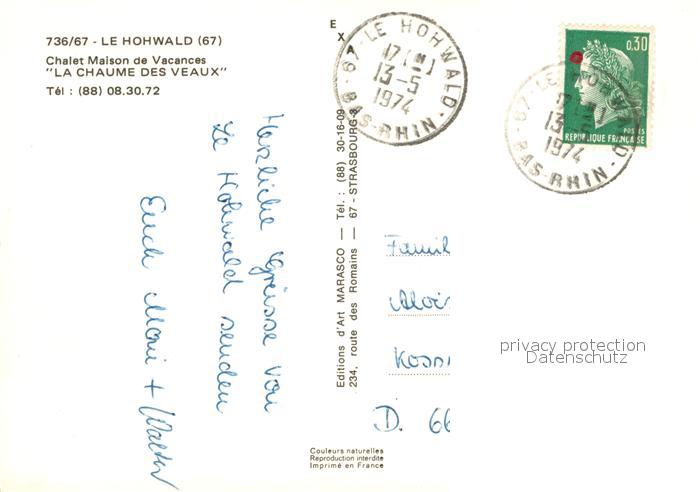 736/67 - LE HOHWALD (67)
Chalet Maison de Vacances
"LA CHAUME DES VEAUX"
Tél : (88) 08.30.72
Herzliche Grüsse von
Le Hohwald senden
Euch Mani + Walter
EXA
Editions d'Art MARASCO — Tél. : (88) 30-16-09
234, route des Romains — 67 - STRASBOURG-3
67-LE HOHWALD
13-5
1974
BAS-RHIN
0,30
POSTES
REPUBLIQUE FRANÇAISE
67-LE HOHWALD
13-5
1974
BAS-RHIN
Famil
Aloi
D. 66
privacy protection
Datenschutz
Couleurs naturelles
Reproduction interdite
Imprimé en France